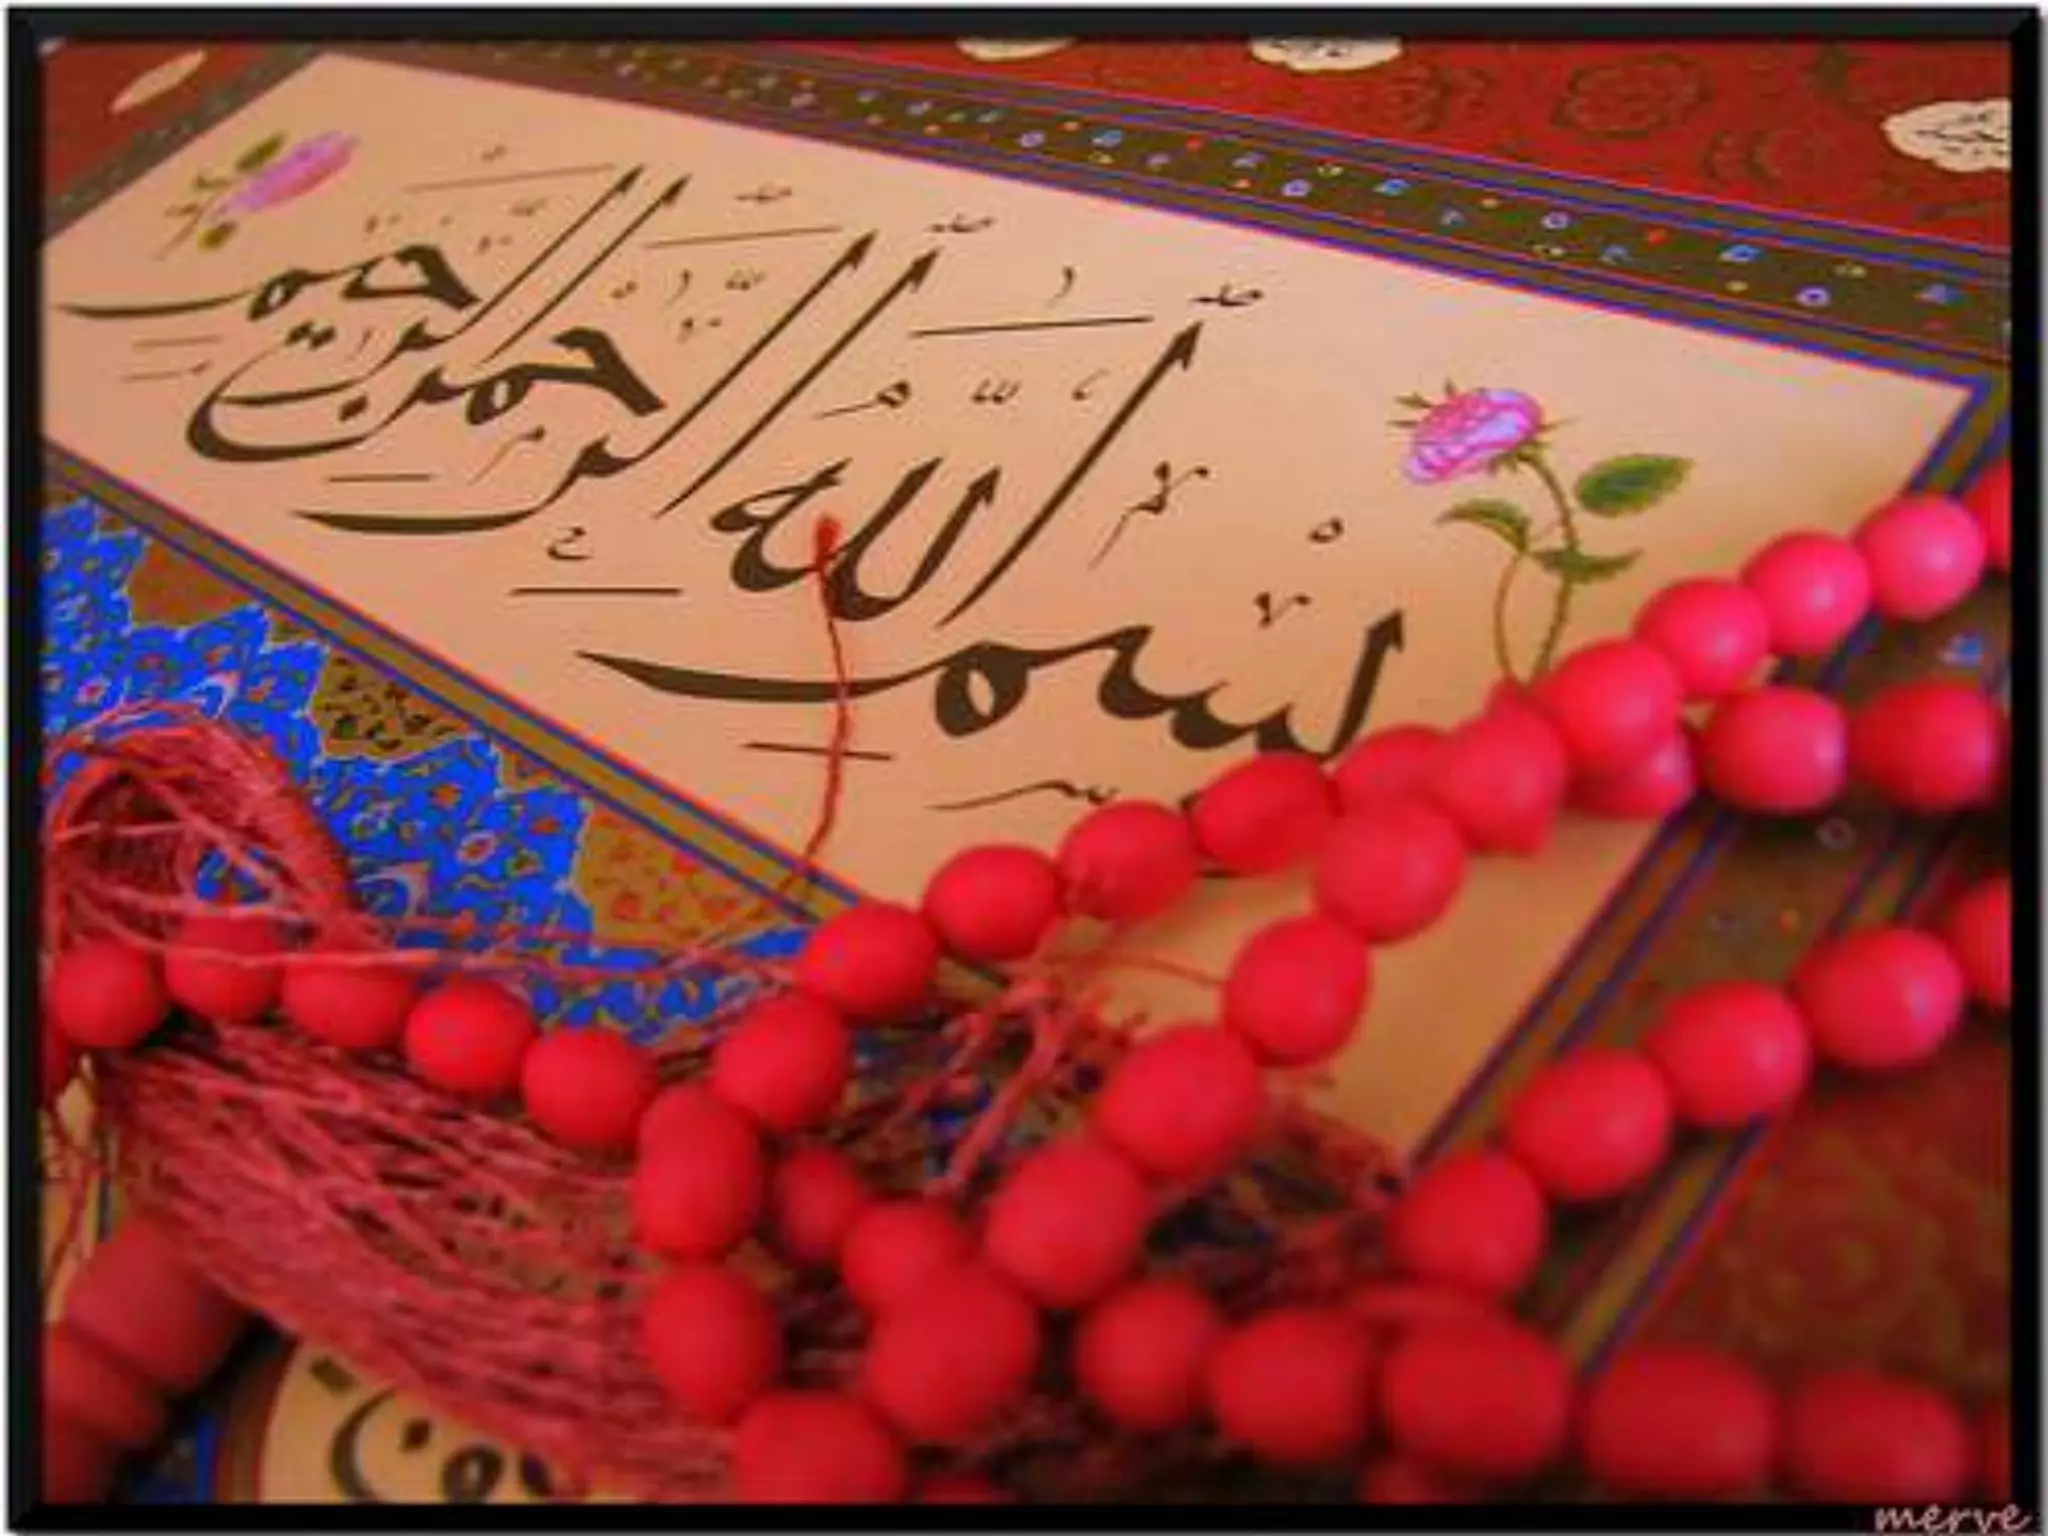 بِسْمِ اللّٰهِ الرَّحْمٰنِ الرَّحِيمِ
merve